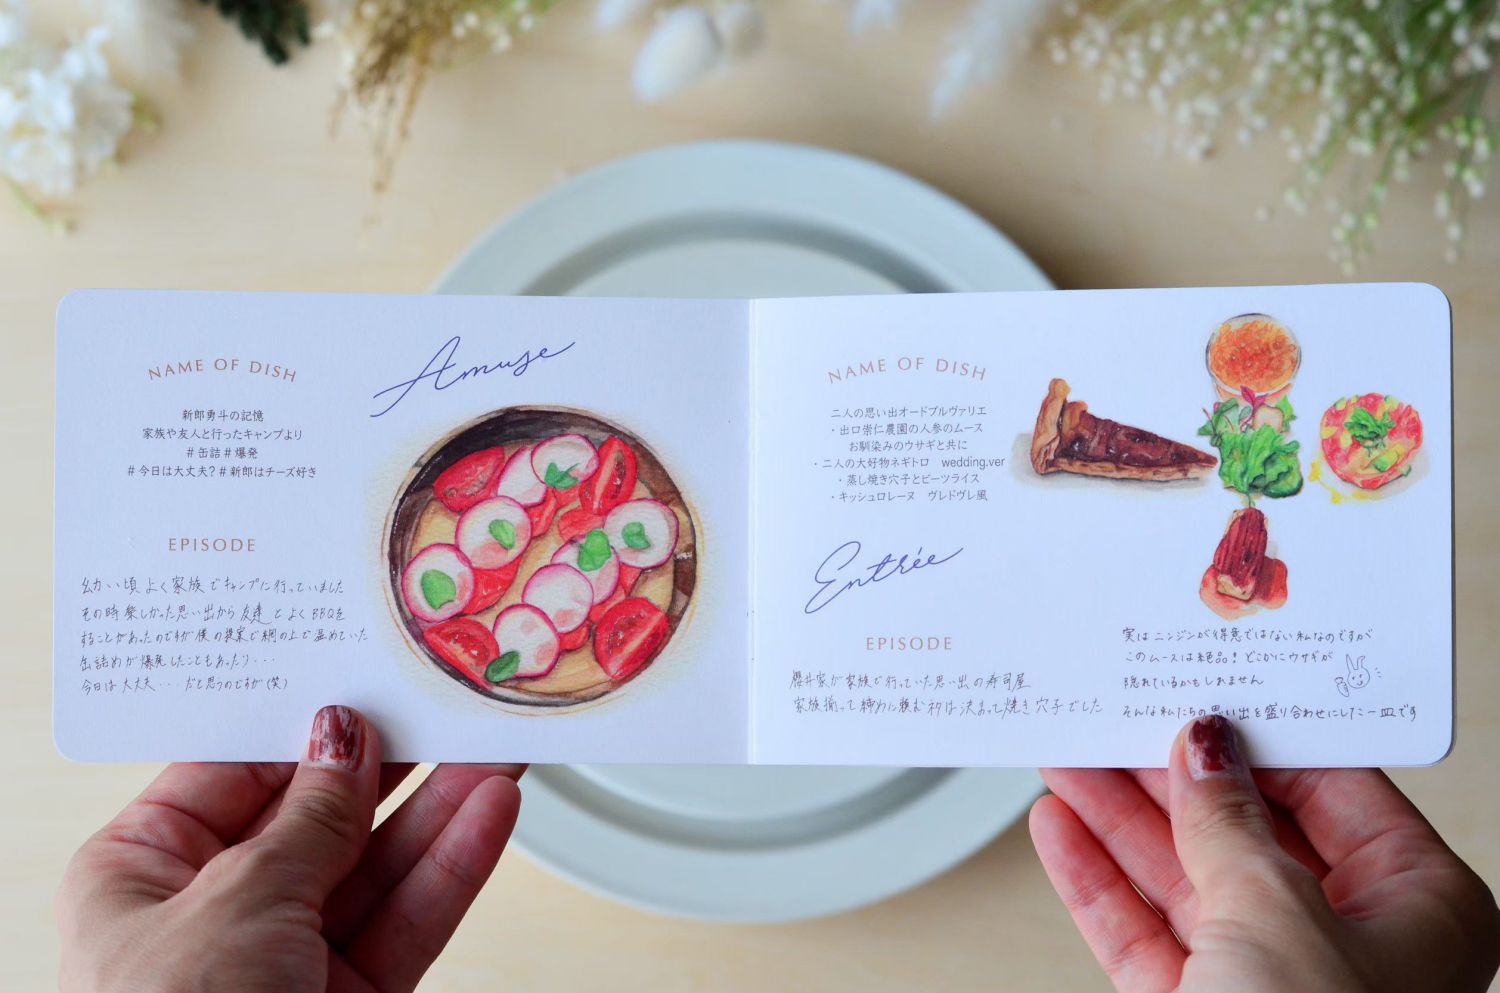 NAME OF DISH
新郎勇斗の記憶
家族や友人と行ったキャンプより
#缶詰#爆発
#今日は大丈夫?#新郎はチーズ好き
Amuse
EPISODE
幼い頃よく家族でキャンプに行っていました
その時楽しかった思い出から友達とよくBBQを
することがあったのですが僕の提案で網の上で温めていた
缶詰めが爆発したこともあったり...
今日は大丈夫...だと思うのですが(笑)
NAME OF DISH
二人の思い出オードブルヴァリエ
・出口崇仁農園の人参のムース
お馴染みのウサギと共に
・二人の大好物ネギトロ wedding.ver
・蒸し焼き穴子とビーツライス
・キッシュロレーヌ ヴレドヴレ風
Entrée
EPISODE
櫻井家が家族で行っていた思い出の寿司屋
家族揃って締めに頼むネタは決まって焼き穴子でした
実はニンジンが得意ではない私なのですが
このムースは絶品!どこかにウサギが
隠れているかもしれません
そんな私たちの思い出を盛り合わせにした一皿です